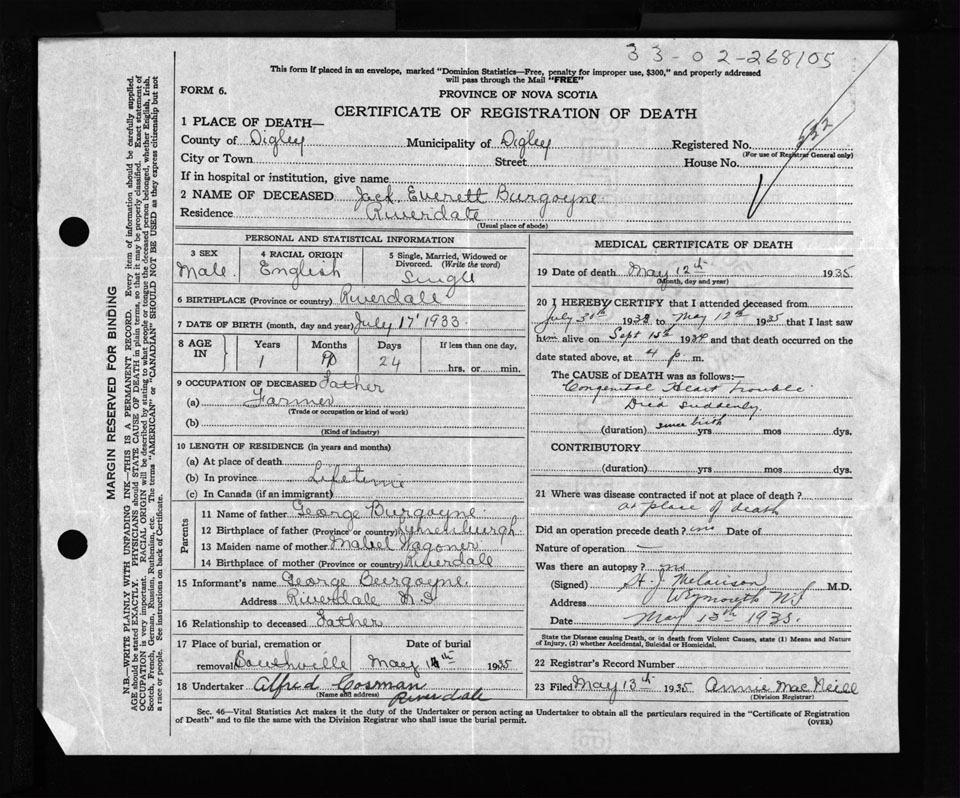 33-02-268105
This form if placed in an envelope, marked "Dominion Statistics—Free, penalty for improper use, $300," and properly addressed
will pass through the Mail "FREE"
FORM 6.
PROVINCE OF NOVA SCOTIA
CERTIFICATE OF REGISTRATION OF DEATH
1 PLACE OF DEATH—
County of Digby Municipality of Digby Registered No. 552
(For use of Registrar General only)
City or Town Street House No.
If in hospital or institution, give name
2 NAME OF DECEASED Jack Everett Burgoyne
Residence Riverdale
(Usual place of abode)
PERSONAL AND STATISTICAL INFORMATION
3 SEX 4 RACIAL ORIGIN 5 Single, Married, Widowed or Divorced. (Write the word)
Male English Single
6 BIRTHPLACE (Province or country) Riverdale
7 DATE OF BIRTH (month, day and year) July 17 1933
8 AGE IN Years Months Days If less than one day,
1 24 hrs. or min.
9 OCCUPATION OF DECEASED Father
(a) Farmer
(Trade or occupation or kind of work)
(b)
(Kind of industry)
10 LENGTH OF RESIDENCE (in years and months)
(a) At place of death
(b) In province Lifetime
(c) In Canada (if an immigrant)
Parents
11 Name of father George Burgoyne
12 Birthplace of father (Province or country)
13 Maiden name of mother Mabel Wagoner
14 Birthplace of mother (Province or country) Riverdale
15 Informant's name George Burgoyne
Address Riverdale N.S
16 Relationship to deceased Father
17 Place of burial, cremation or Date of burial
removal May 14th 1935
18 Undertaker Alfred Cosman
(Name and address) Riverdale
MEDICAL CERTIFICATE OF DEATH
19 Date of death May 12th 1935
(Month, day and year)
20 I HEREBY CERTIFY that I attended deceased from
July 30th to May 12th 1935 that I last saw
him alive on Sept 15th 1934 and that death occurred on the
date stated above, at 4 p. m.
The CAUSE of DEATH was as follows:—
Congenital Heart Trouble
Died suddenly
(duration) since birth yrs mos dys.
CONTRIBUTORY
(duration) yrs mos dys.
21 Where was disease contracted if not at place of death?
at place of death
Did an operation precede death? no Date of
Nature of operation —
Was there an autopsy? no
(Signed) M.D.
Address Weymouth N.S
Date May 13th 1935.
State the Disease causing Death, or in death from Violent Causes, state (1) Means and Nature
of Injury, (2) whether Accidental, Suicidal or Homicidal.
22 Registrar's Record Number
23 Filed May 13th 1935 Annie MacNeill
(Division Registrar)
Sec. 46—Vital Statistics Act makes it the duty of the Undertaker or person acting as Undertaker to obtain all the particulars required in the "Certificate of Registration
of Death" and to file the same with the Division Registrar who shall issue the burial permit.
(OVER)
MARGIN RESERVED FOR BINDING
N.B.—WRITE PLAINLY WITH UNFADING INK—THIS IS A PERMANENT RECORD. Every item of information should be carefully supplied.
AGE should be stated EXACTLY. PHYSICIANS should STATE CAUSE OF DEATH in plain terms, so that it may be properly classified. Exact statement of
OCCUPATION is very important. RACIAL ORIGIN will be described by stating to what people or tongue the deceased person belonged, whether English, Irish,
Scotch, French, German, Russian, Ruthenian, etc. The terms "AMERICAN" or "CANADIAN" SHOULD NOT BE USED as they express citizenship but not
a race or people. See instructions on back of Certificate.